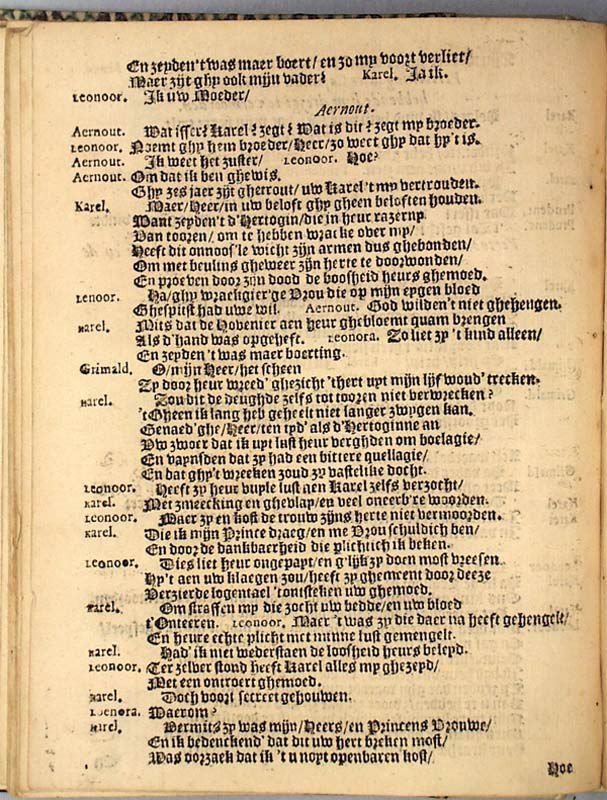 En zeyden't was maer boert/ en zo my voort verliet/
Maer zijt ghy ook mijn vader? Karel. Ja ik.
Leonoor. Ik uw Moeder/
Aernout.
Aernout. Wat isser? Karel? zegt? Wat is dit? zegt my broeder.
Leonoor. Noemt ghy hem broeder/ Heer/ zo weet ghy dat hy't is.
Aernout. Ik weet het zuster/ Leonoor. Hoe?
Aernout. Om dat ik ben ghewis.
Ghy zes jaer zijt ghetrout/ uw Karel 't my vertrouden.
Karel. Maer/ Heer/ in uw beloft ghy gheen beloften houden.
Want zeyden't d'Hertogin/ die in heur razerny
Van tooren/ om te hebben wracke over my/
Heeft dit onnoos'le wicht zijn armen dus ghebonden/
Om met beulins gheweer zijn herte te doorwonden/
En proeven door zijn dood de boosheid heurs ghemoed.
Lenoor. Ha/ ghy wraekgier'ge Vrou die op mijn eygen bloed
Ghespitst had uwe wil. Aernout. God wilden't niet ghehengen.
Karel. Mits dat de Hovenier aen heur ghebloemt quam brengen
Als d'hand was opgeheft. Leonora. Zo liet zy 't kind alleen/
En zeyden 't was maer boerting.
Grimald. O/ mijn Heer/ het scheen
Zy door heur wreed' ghezicht 't hert uyt mijn lijf woud' trecken.
Karel. Zou dit de deughde zelfs tot tooren niet verwrecken?
'tGheen ik lang heb geheelt niet langer zwygen kan.
Genaed'ghe/ Heer/ ten tyd' als d'Hertoginne an
Vw zwoer dat ik uyt lust heur verghden om boelagie/
En vaynsden dat zy had een bittere quellagie/
En dat ghy't wreeken zoud zy vastelike docht.
Leonoor. Heeft zy heur vuyle lust aen Karel zelfs verzocht/
Karel. Met zmeecking en ghevlay/ en veel oneerb're woorden.
Leonoor. Maer zy en kost de trouw zijns herte niet vermoorden.
Karel. Die ik mijn Prince draeg/ en me Vrou schuldich ben/
En door de dankbaerheid die plichtich ik beken.
Leonoor. Dies liet heur ongepayt/ en g'lijk zy doen most vreesen
Hy't aen uw klaegen zou/ heeft zy ghemeent door deeze
Verzierde logentael 't onisteken uw ghemoed.
Karel. Om straffen my die zocht uw bedde/ en uw bloed
t'Onteeren. Leonoor. Maer 't was zy die daer na heeft gehengelt/
En heure echte plicht met minne lust gemengelt.
Karel. Had' ik niet wederstaen de boosheid heurs beleyd.
Leonoor. Ter zelver stond heeft Karel alles my ghezeyd/
Met een ontroert ghemoed.
Karel. Doch voort secreet gehouwen.
Leonora. Waerom?
Karel. Vermits zy was mijn/ Heers/ en Princens Vrouwe/
En ik bedenckend' dat dit uw hert breken most/
Was oorzaek dat ik 't u noyt openbaren kost/
Hoe